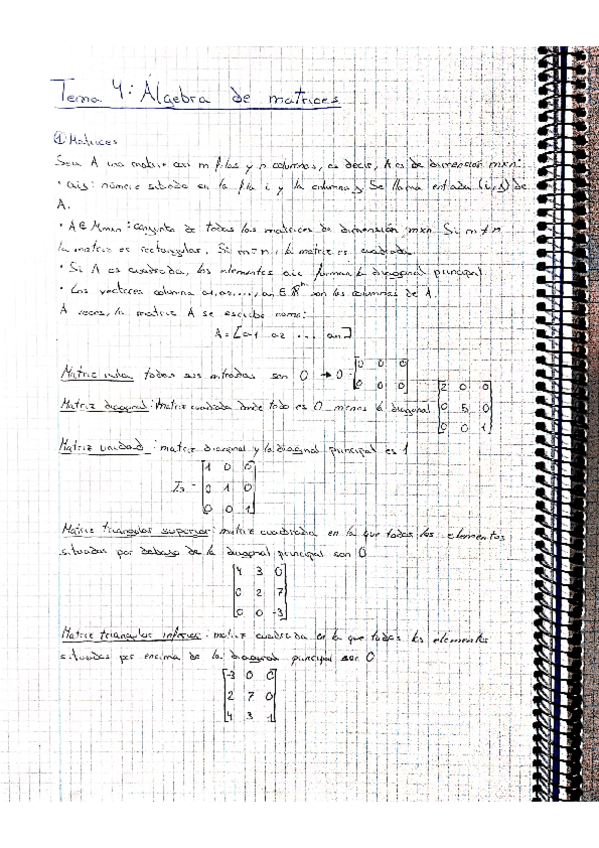 Tema 4: Álgebra de matrices
① Matrices
Sea A una matriz con m filas y n columnas, es decir, A es de dimensión mxn:
• aij: número situado en la fila i y la columna j. Se llama entrada (i,j) de
A.
• A ∈ Mmxn: conjunto de todas las matrices de dimensión mxn. Si m ≠ n
la matriz es rectangular. Si m=n, la matriz es cuadrada.
• Si A es cuadrada, los elementos aii forman la diagonal principal.
• Los vectores columna a1, a2, ..., an ∈ ℝᵐ son las columnas de A.
A veces, la matriz A se escribe como:
A = [a1 a2 ... an]
Matriz nula: todas sus entradas son 0 → 0 = [0 0 0
0 0 0]
Matriz diagonal: matriz cuadrada donde todo es 0 menos la diagonal [2 0 0
0 5 0
0 0 1]
Matriz unidad: matriz diagonal y la diagonal principal es 1
I3 = [1 0 0
0 1 0
0 0 1]
Matriz triangular superior: matriz cuadrada en la que todos los elementos
situados por debajo de la diagonal principal son 0
[4 3 0
0 2 7
0 0 -3]
Matriz triangular inferior: matriz cuadrada en la que todos los elementos
situados por encima de la diagonal principal son 0
[-3 0 0
2 7 0
4 3 1]